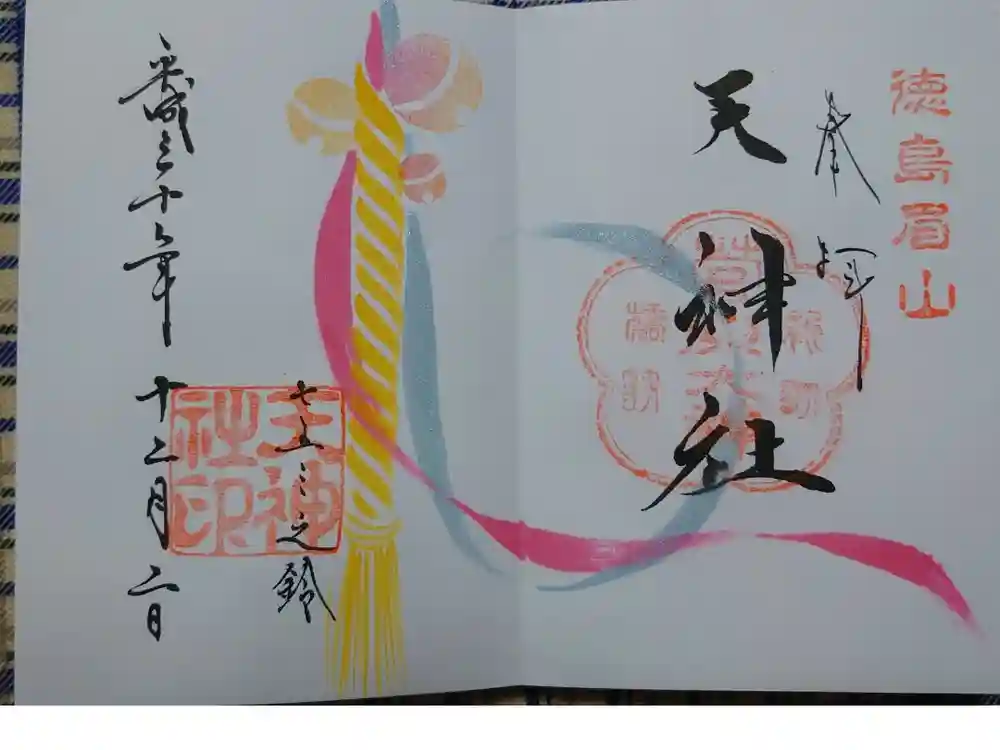 徳島眉山
奉拝
天神社
七五三之鈴
平成三十年
十二月二日
天神
社印